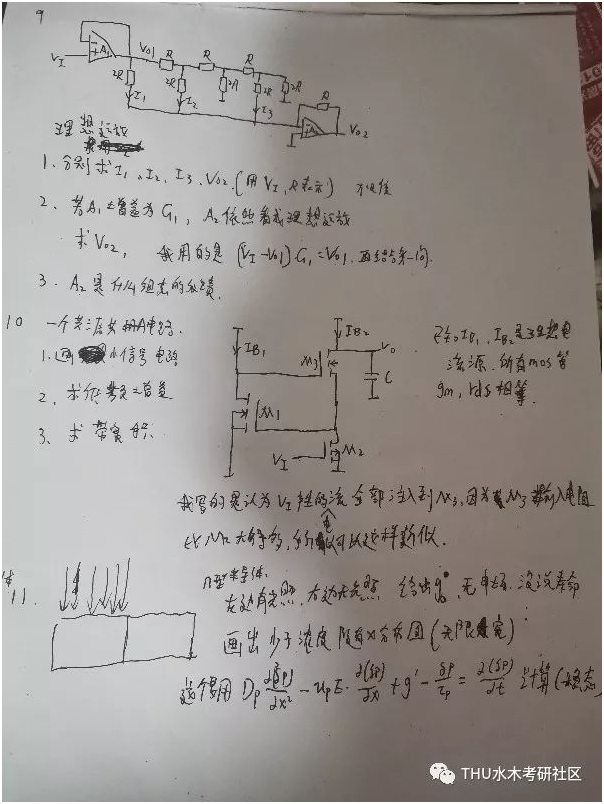 9
VI
A1
VO1
R
R
R
2R
2R
2R
2R
2R
I1
I2
I3
VO2
理想运放
1. 分别求 I1、I2、I3、VO2. (用 VI, R表示)
2. 若A1增益为 G1, A2 依然看成理想运放
求 VO2, 我用的是 (VI-VO1)G1=VO1. 再结合第一问.
3. A2 是什么组态的反馈.
10 一个共源共栅电路.
1. 画小信号电路
2. 求低频增益
3. 求带宽
IB1
IB2
M3
VO
C
M1
VI
M2
已知IB1, IB2是理想电
流源. 所有mos管
gm, rds相等.
我写的是认为 VI 产生的电流全部注入到M3, 因为M3输入电阻
比M2大得多, 所以可以这样近似.
11.
n型半导体.
左边有光照, 右边无光照 给出g', 无电场, 没说寿命
画出少子浓度随x分布图 (无限宽)
这个得用 Dp ∂²(δp)/∂x² - upE·∂(δp)/∂x + g' - δp/τp = ∂(δp)/∂t 计算 (稳态)
THU水木考研社区